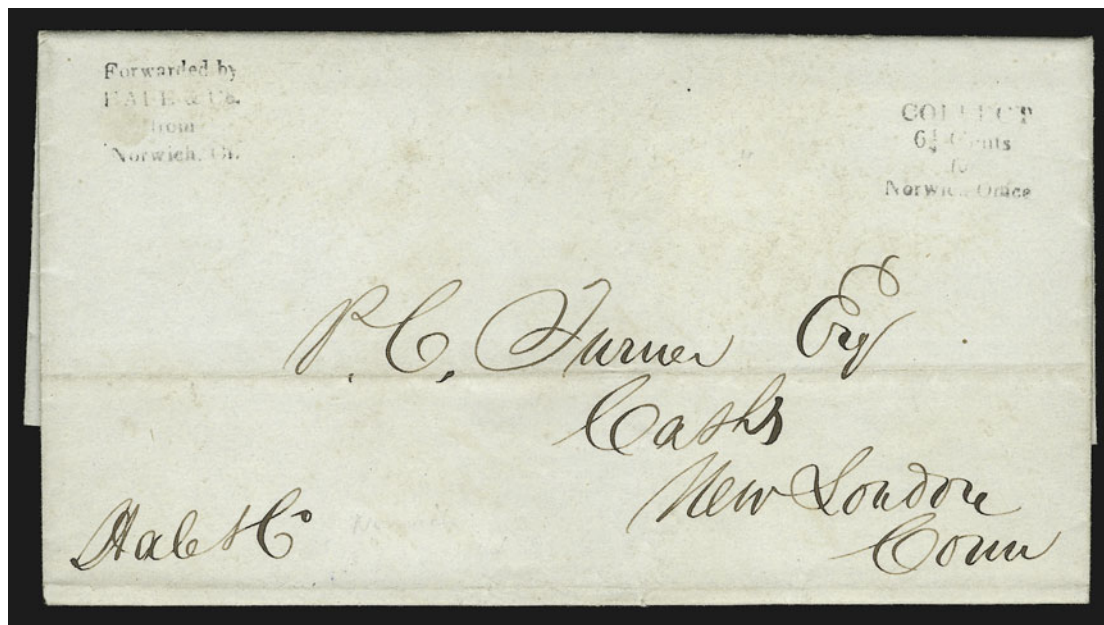 Forwarded by
HALE & Co.
from
Norwich, Ct.
COLLECT
6¼ Cents
for
Norwich Office
P. C. Turner Esq
Cashr
New London
Conn
Hale & Co
Norwich